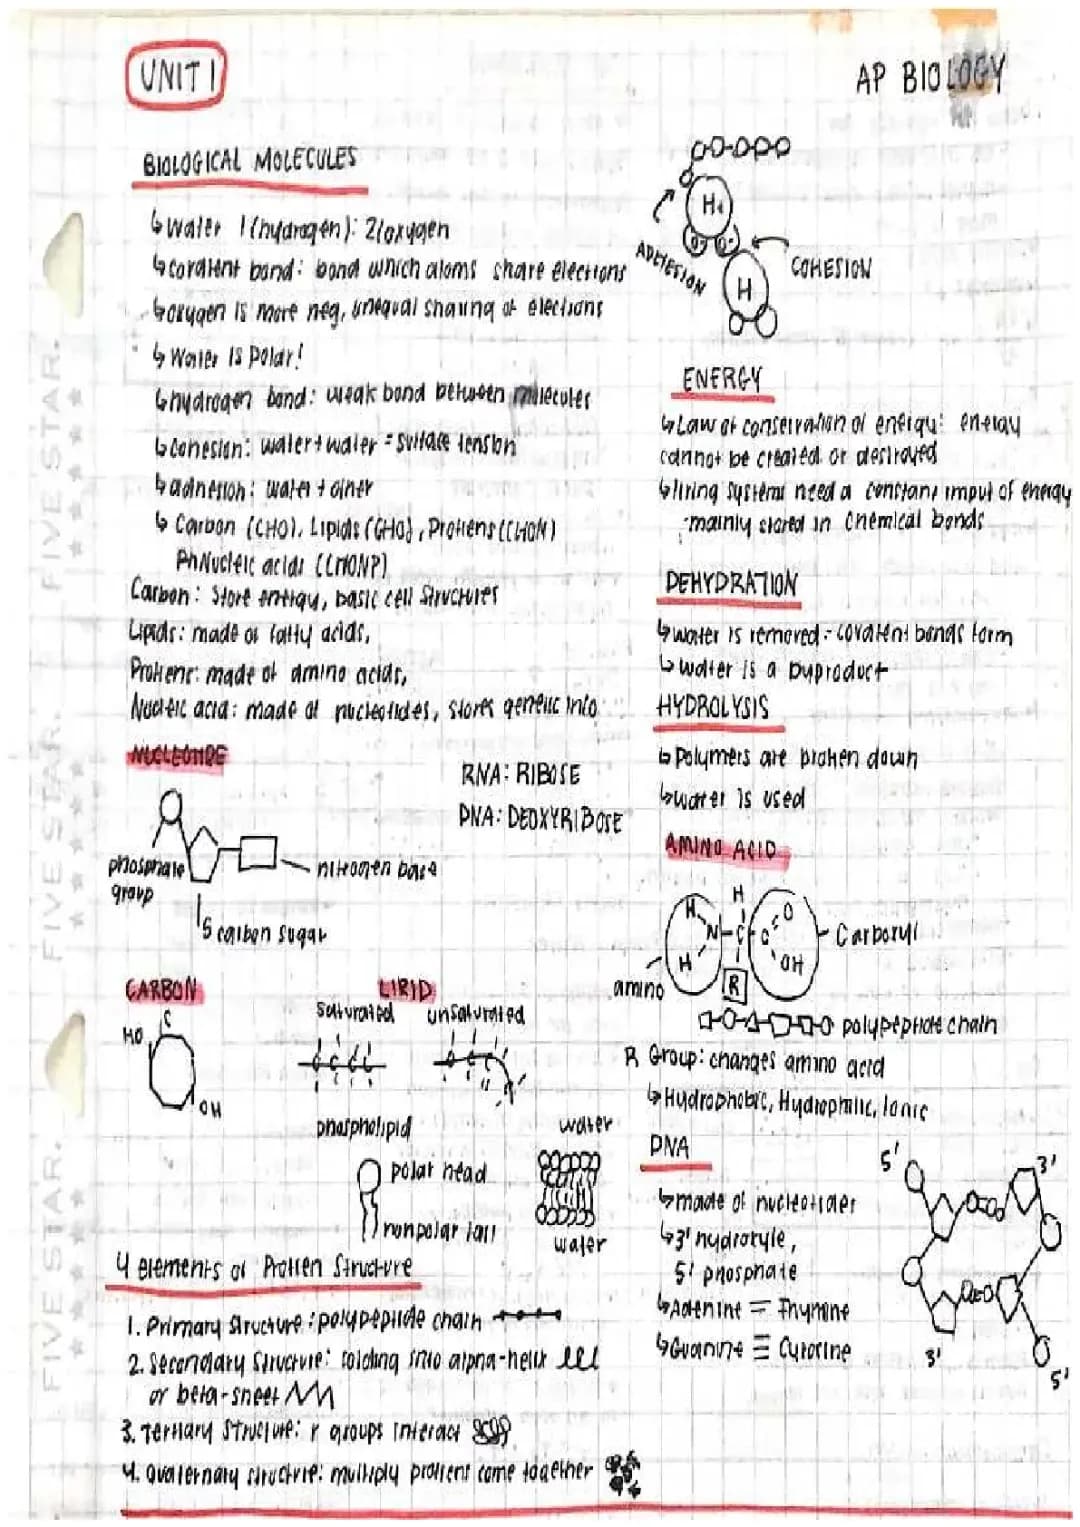 UNIT 1
AP BIOLOGY
BIOLOGICAL MOLECULES
↳ Water 1(hydrogen): 2(oxygen
↳ covalent bond: bond which atoms share electrons
↳ oxygen is more neg, unequal sharing of electrons
↳ Water is polar!
↳ hydrogen bond: weak bond between molecules
↳ cohesion: water + water = surface tension
↳ adhesion: water + other
↳ Carbon (CHO), Lipids (CHO), Protiens (CHON)
Nucleic acids (CHONP)
Carbon: Store energy, basic cell structures
Lipids: made of fatty acids,
Protiens: made of amino acids,
Nucleic acid: made of nucleotides, stores genetic info
NUCLEOTIDE
RNA: RIBOSE
DNA: DEOXYRIBOSE
phosphate
group
nitrogen base
5 carbon sugar
CARBON
HO
C
OH
LIPID
saturated
unsaturated
c c c c
phospholipid
polar head
nonpolar tail
water
water
4 elements of Protien Structure
1. Primary Structure: polypeptide chain
2. Secondary Structure: folding into alpha-helix
or beta-sheet
3. Tertiary Structure: r groups interact
4. Quaternary structure: multiply protiens come together
H
ADHESION
COHESION
H
ENERGY
↳ Law of conservation of energy: energy
cannot be created or destroyed
↳ living systems need a constant imput of energy
-mainly stored in chemical bonds
DEHYDRATION
↳ water is removed - covalent bonds form
↳ water is a byproduct
HYDROLYSIS
↳ Polymers are broken down
↳ water is used
AMINO ACID
H
H
N-C-C
O
OH
H
R
Carboxyl
amino
polypeptide chain
R Group: changes amino acid
↳ Hydrophobic, Hydrophilic, Ionic
DNA
↳ made of nucleotides
↳ 3' hydroxyle,
5' phosphate
↳ Adenine = Thymine
↳ Guanine ≡ Cytosine
5'
3'
3'
5'
FIVE STAR.
FIVE STAR.
FIVE STAR.
FIVE STAR.